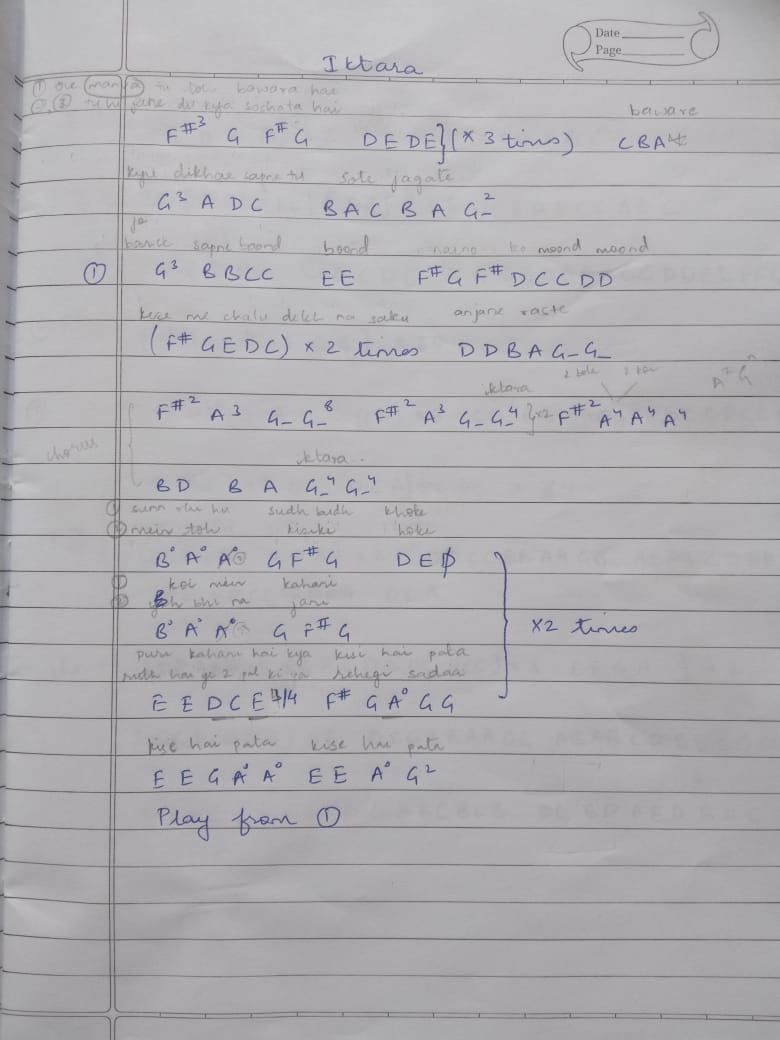 Date
Page
Iktara
① ore man tu toh bawara hai
②,③ tu hi jane du kya sochata hai
baware
F#³ G F# G D E D E } (× 3 times) C B A⁴
kyu dikhae sapne tu sote jagate
G³ A D C B A C B A G_²
jo
barse sapne boond boond naino ko moond moond
① G³ B B C C E E F# G F# D C C D D
kese me chalu dekh na saku anjane raste
(F# G E D C) × 2 times D D B A G_ G_
iktara 2 bole 2 kon A² G
F#² A³ G_ G_⁸ F#² A³ G_ G_⁴ } ×2 F#² A⁴ A⁴ A⁴
chorus
iktara
B D B A G_⁴ G_⁴
① sunn rha hu sudh budh khoke
② mein toh kisiki hoke
B° A° A° G F# G D E D
① koi mein kahani
② yeh bhi na jani
B° A° A° G F# G
×2 times
puri kahani hai kya kisi hai pata
ruth hai ye 2 pal ki ya rehegi sadaa
E E D C E 3/4 F# G A° G G
kise hai pata kise hai pata
E E G A° A° E E A° G²
Play from ①